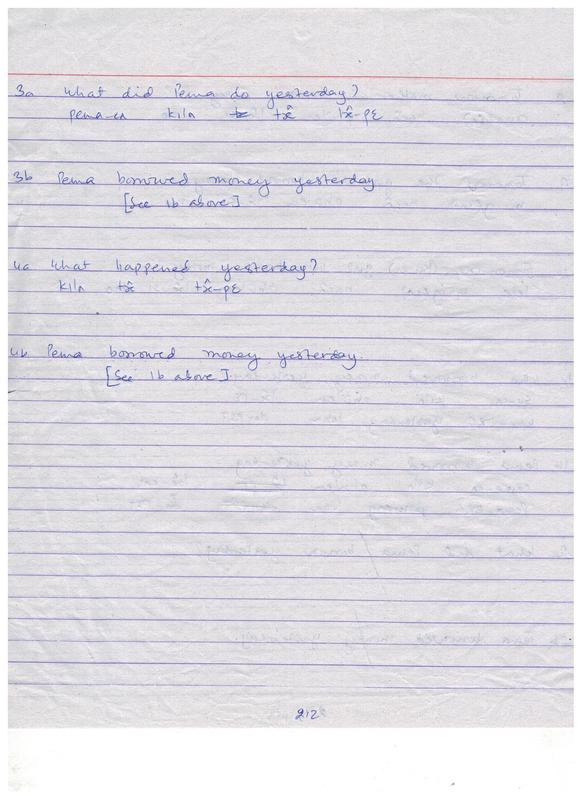 3a What did Pema do yesterday?
pema-ɛn kiln tx̂ tx̂-pɛ
3b Pema borrowed money yesterday
[See 1b above]
4a What happened yesterday?
kiln tx̂ tx̂-pɛ
4b Pema borrowed money yesterday.
[See 1b above]
212